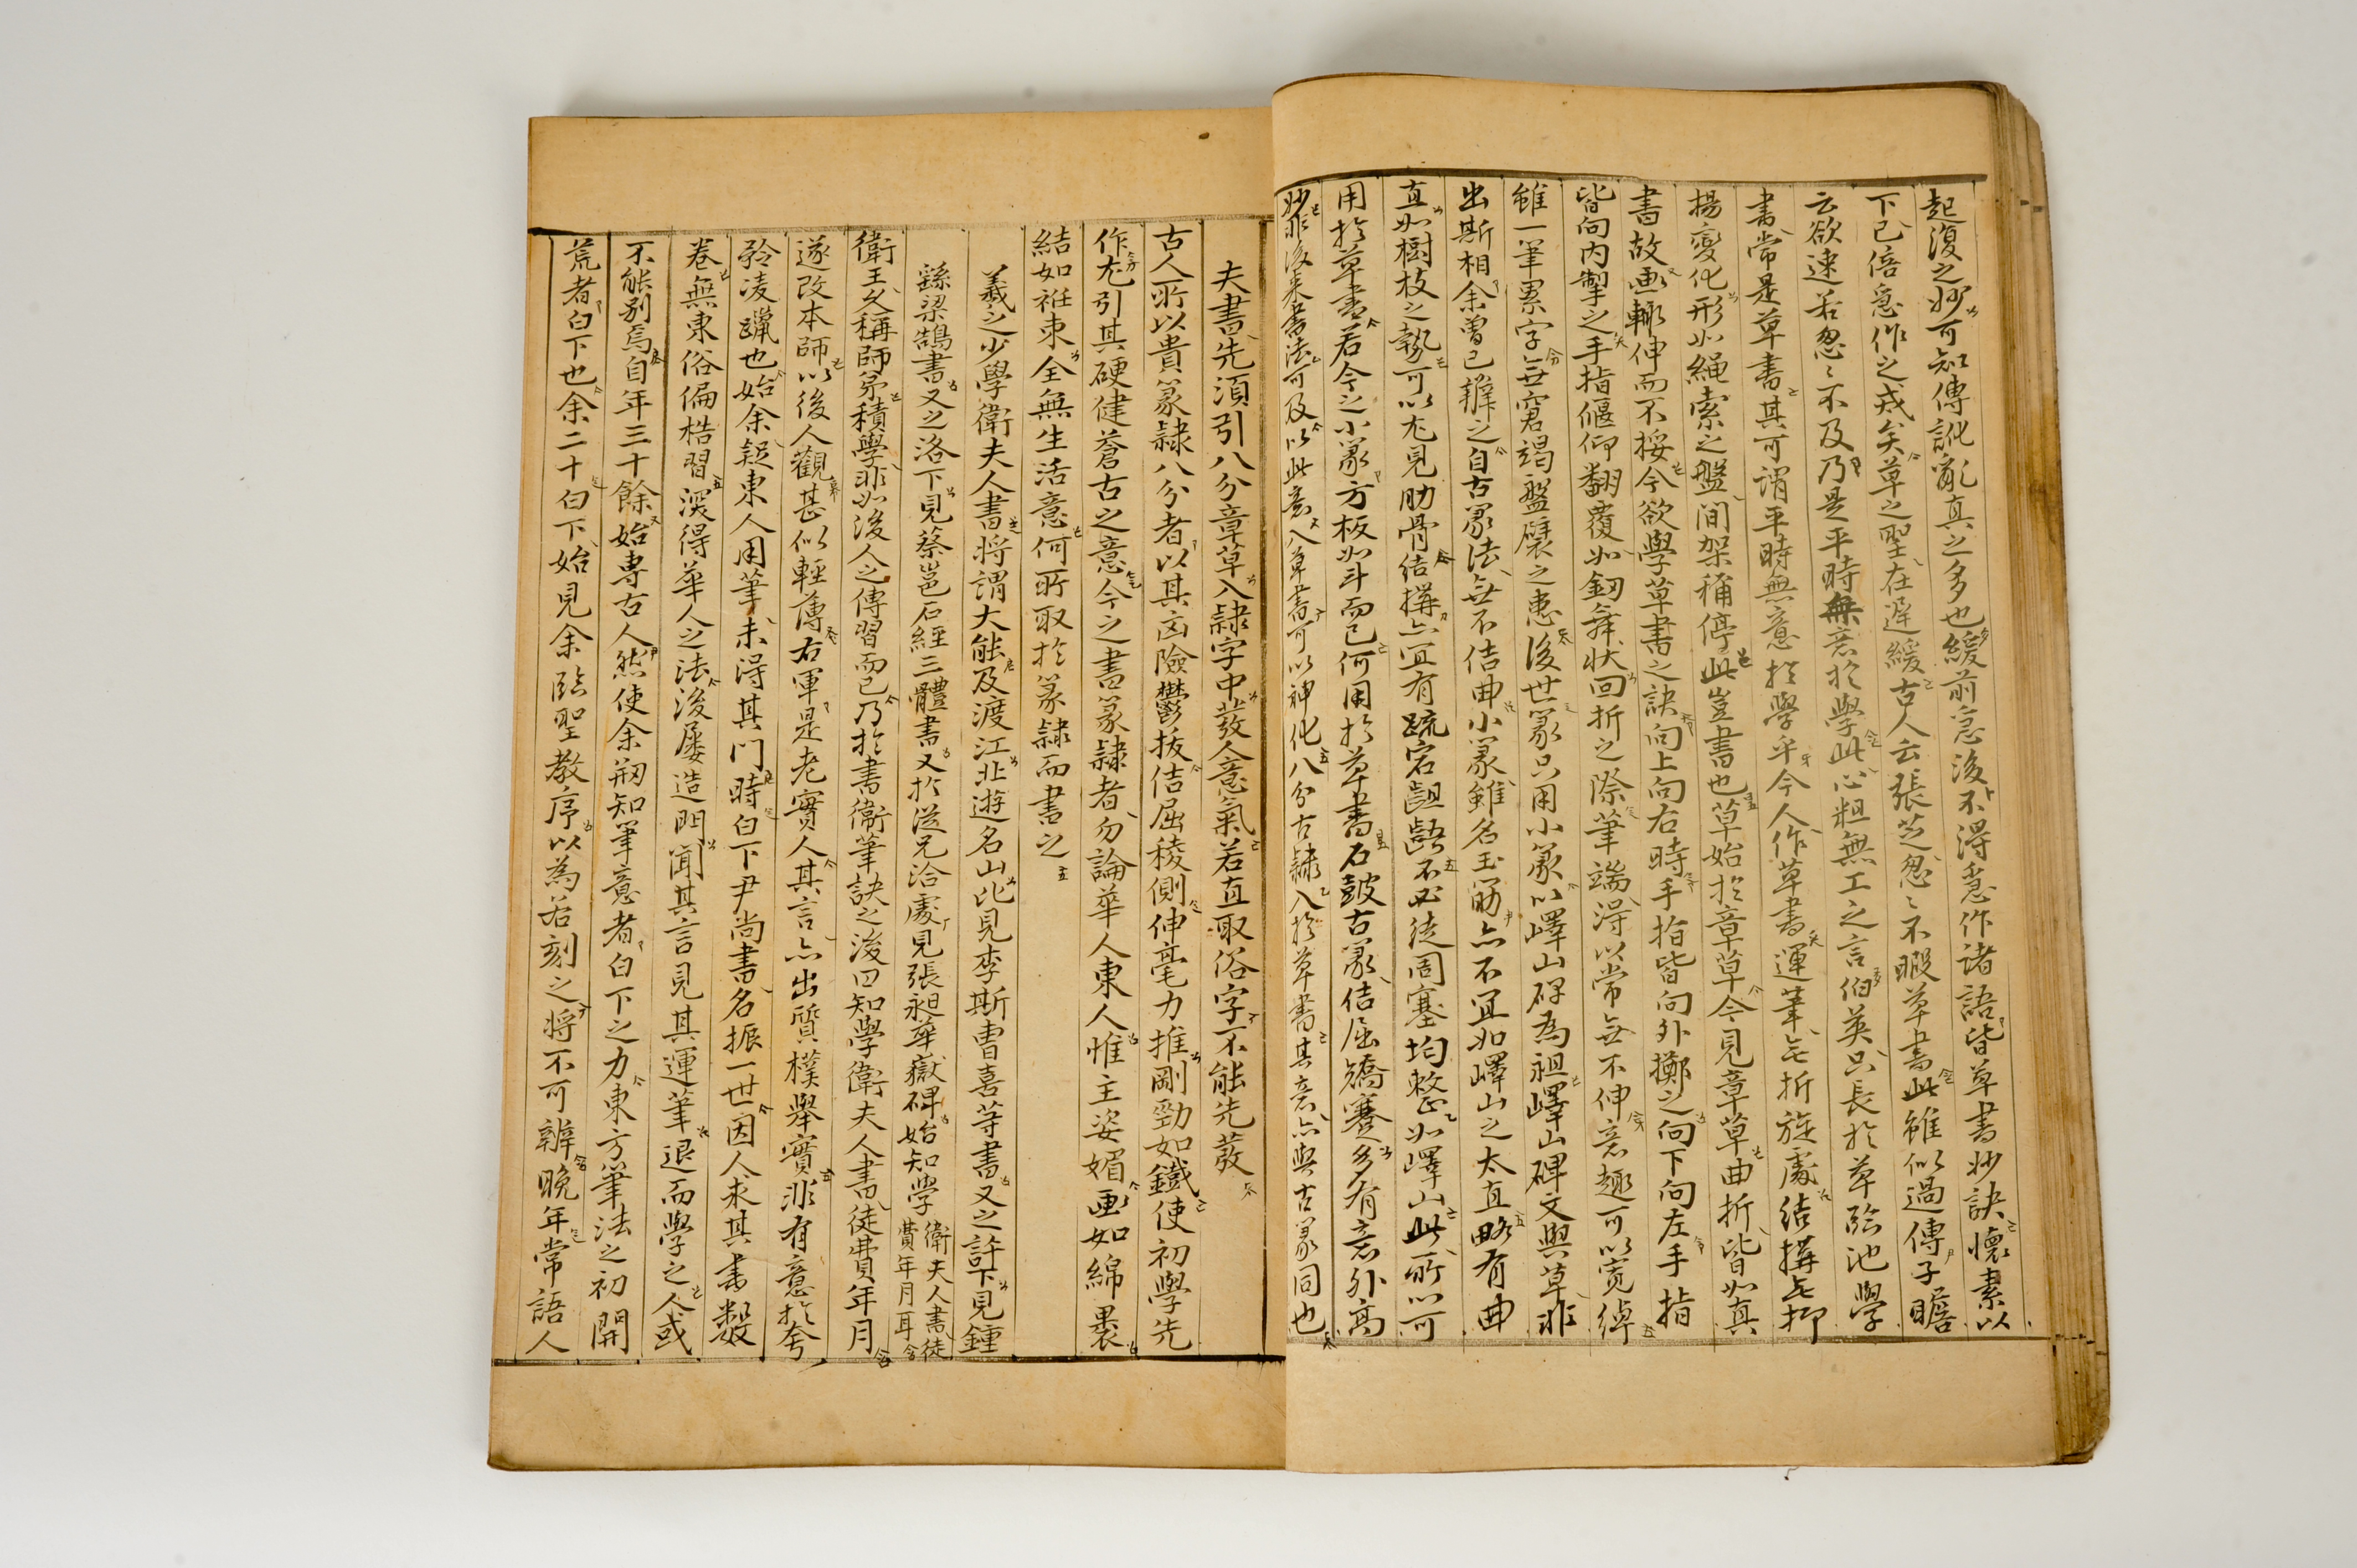 起復之妙可知傳訛亂眞之多也緩前急後不得急作諸語皆草書妙訣懷素以
下已倍急作之戎矣草之聖在遲緩古人云張芝怱〻不暇草書此雖似過傳子瞻
云欲速若怱〻不及乃是平時無意於學此心粗無工之言伯英只長於草臨池學
書常是草書其可謂平時無意於學乎今人作草書運筆無折旋處結搆無抑
揚變化形如繩索之盤間架稱停此豈書也草始於章草今見章草曲折皆如眞
書故畫輒伸而不挼今欲學草書之訣向上向右時手指皆向外擲之向下向左手指
皆向內掣之手指偃仰翻覆如釰舞狀回折之際筆端得以常無不伸意趣可以寬綽
雖一筆累字無窘竭盤礴之患後世篆只用小篆以嶧山碑為祖嶧山碑文與草非
出斯相余曾已辨之自古篆法無不佶曲小篆雖名玉筯亦不宜如嶧山之太直略有曲
直如樹枝之勢可以尤見肋骨結搆亦宜有疏宕齟齬不必徒周塞均整如嶧山此所以可
用於草書若今之小篆方板如斗而已何用於草書石鼓古篆佶屈矯蹇多有意外高
妙非後來書法可及以此意入草書可以神化八分古隷入於草書其意亦與古篆同也
夫書先須引八分章草入隷字中發人意氣若直取俗字不能先發
古人所以貴篆隷八分者以其凶險欝拔佶屈稜側伸毫力推剛勁如鐵使初學先
作尤引其硬健蒼古之意今之書篆隷者勿論華人東人惟主姿媚畫如綿裹
結如絍束全無生活意何所取於篆隷而書之
羲之少學衛夫人書将謂大能及渡江北遊名山比見李斯曹喜等書又之許下見鍾
繇梁鵠書又之洛下見蔡邕石經三體書又於從兄洽處見張昶華嶽碑始知學衛夫人書徒費年月耳
衛王久稱師弟積學非如後人之傳習而已乃於書衛筆訣之後曰知學衛夫人書徒費年月
遂改本師以後人觀甚似輕薄右軍是老實人其言亦出質樸擧實非有意於夸
矜凌躐也始余疑東人用筆未得其門時白下尹尙書名振一世因人求其書數
卷無東俗偏枯習深得華人之法後屢造門聞其言見其運筆退而學之人或
不能別焉自年三十餘始專古人然使余粗知筆意者白下之力東方筆法之初開
荒者白下也余二十白下始見余臨聖教序以為若刻之将不可辨晩年常語人